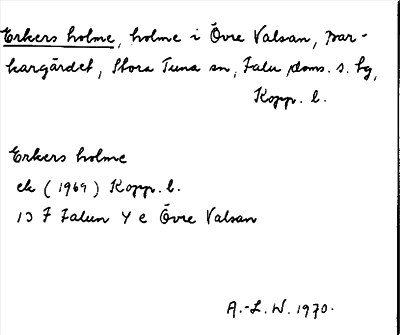 Erkers holme, holme i Övre Valsan, par-
kargärdet, Stora Tuna sn, Falu doms. s. tg,
Kopp. l.
Erkers holme
ek (1969) Kopp. l.
13 F Falun 4 e Övre Valsan
A.-L. W. 1970.